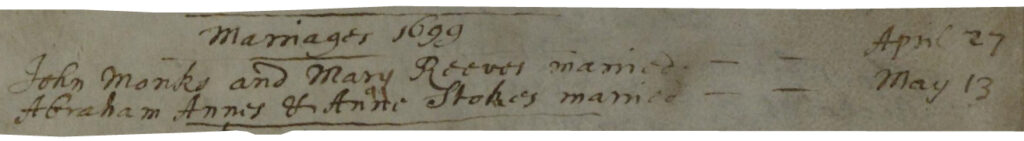 Marriages 1699
John Monks and Mary Reeves married — — April 27
Abraham Annes & Anne Stokes married — — May 13